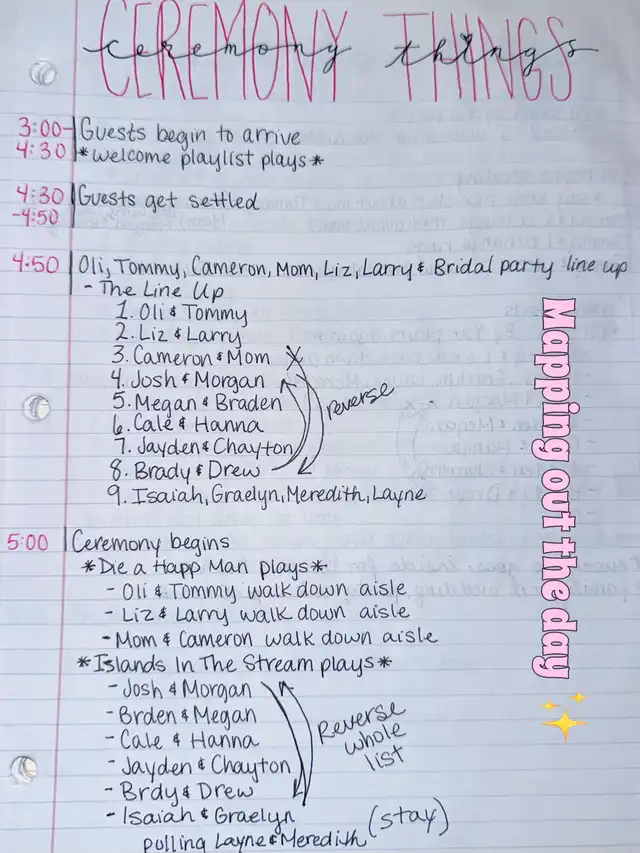 CEREMONY THINGS
ceremony things
3:00- Guests begin to arrive
4:30 *welcome playlist plays*
4:30 Guests get settled
-4:50
4:50 Oli, Tommy, Cameron, Mom, Liz, Larry & Bridal party line up
- The Line Up
1. Oli & Tommy
2. Liz & Larry
3. Cameron & Mom
4. Josh & Morgan
5. Megan & Braden
6. Cale & Hanna
7. Jayden & Chayton
8. Brady & Drew
9. Isaiah, Graelyn, Meredith, Layne
reverse
Mapping out the day
5:00 Ceremony begins
*Die a Happ Man plays*
- Oli & Tommy walk down aisle
- Liz & Larry walk down aisle
- Mom & Cameron walk down aisle
*Islands In The Stream plays*
- Josh & Morgan
- Brden & Megan
- Cale & Hanna
- Jayden & Chayton
- Brdy & Drew
- Isaiah & Graelyn
pulling Layne & Meredith
Reverse
whole
list
(stay)